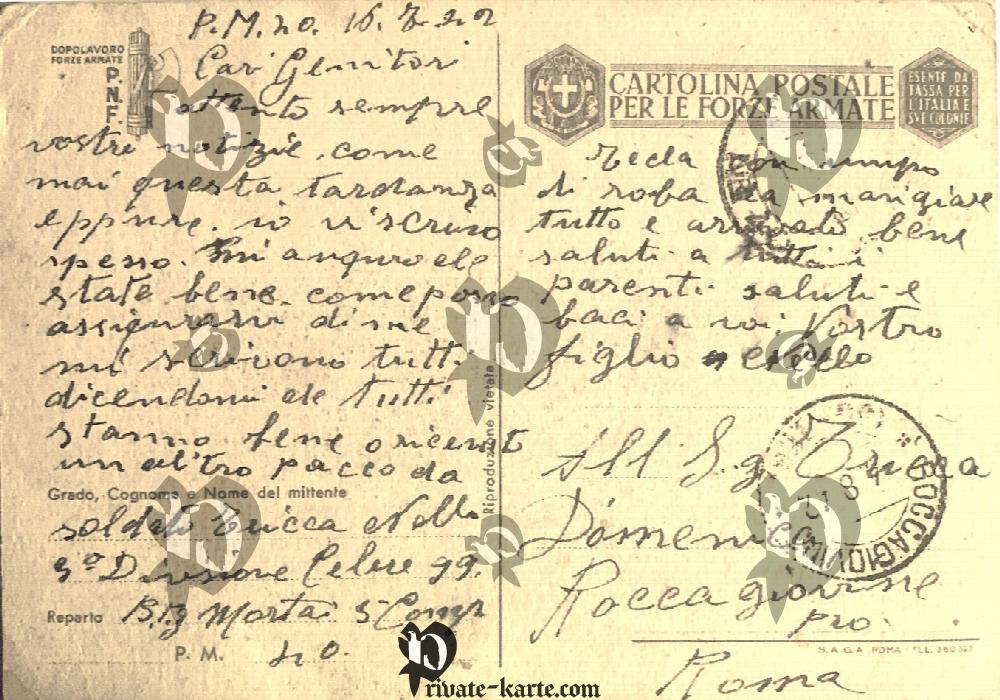 P.M. 40. 16. 7. 42
DOPOLAVORO
FORZE ARMATE
P.N.F.
Cari Genitori
Attento sempre
vostre notizie. come
mai questa tardanza
eppure. io vi scrivo
spesso. mi auguro che
state bene. come posso
assicurarvi di me
mi scrivono tutti
dicendomi che tutti
stanno bene o ricevut
un altro pacco da
Grado, Cognome e Nome del mittente
soldato Tricca Nello
3º Divisione Celere 99.
Reparto Btg Mortai 3 Comp
P. M. 40.
Riproduzione vietata
CARTOLINA POSTALE
PER LE FORZE ARMATE
ESENTE DA
TASSA PER
L'ITALIA E
SUE COLONIE
Tecla con
di roba da mangiare
tutto e arrivato bene
saluti a tutti i
parenti saluti e
baci a voi. Vostro
figlio Nello
All Sig Tricca
Domenico
Roccagiovine
pro.
Roma
ROCCAGIOVINE
S.A.G.A. ROMA - TEL. 360327
Private-karte.com